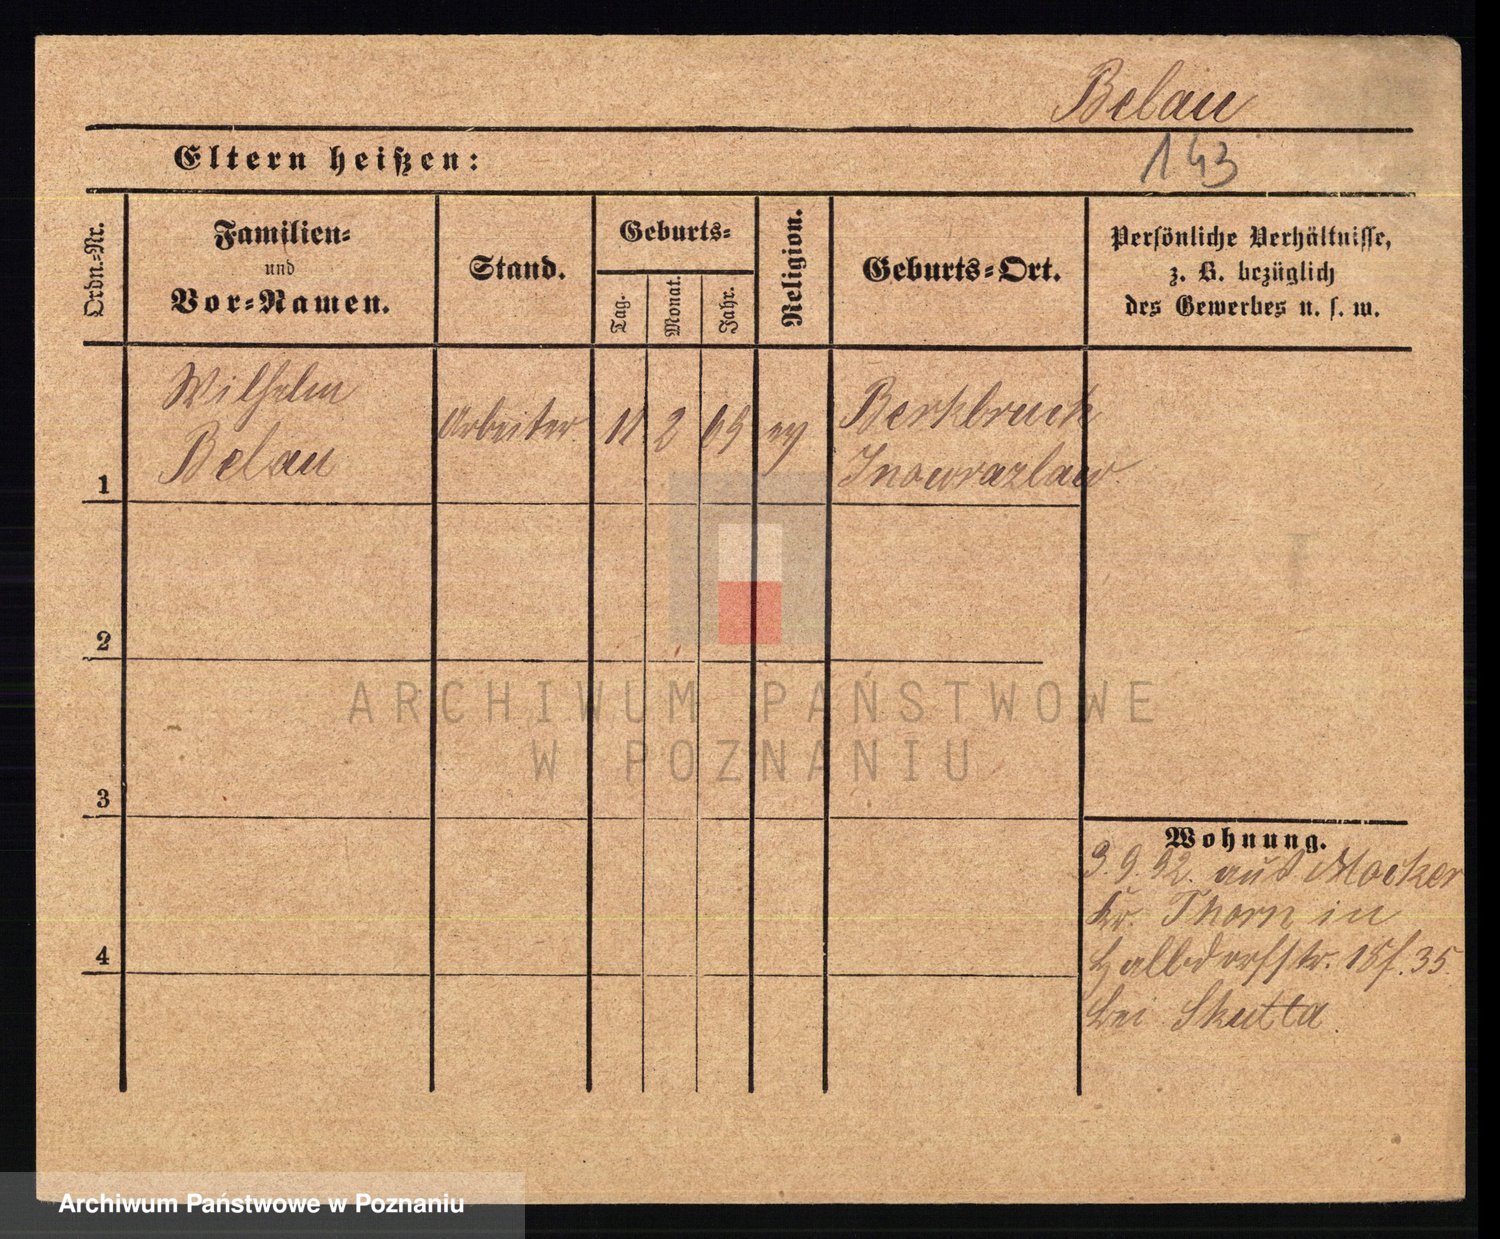 Belau
Eltern heißen:
143
Ordn.-Nr.
Familien-
und
Vor-Namen.
Stand.
Geburts-
Tag.
Monat.
Jahr.
Religion.
Geburts-Ort.
Persönliche Verhältnisse,
z. B. bezüglich
des Gewerbes u. s. w.
1
Wilhelm
Belau
Arbeiter
11
2
69
ev
Berkbruch
Inowrazlaw.
2
3
4
Wohnung.
3.9.92. aus Mocker
Kr. Thorn in
Halbdorfstr. 35.
bei Skutta.
ARCHIWUM PAŃSTWOWE
W POZNANIU
Archiwum Państwowe w Poznaniu